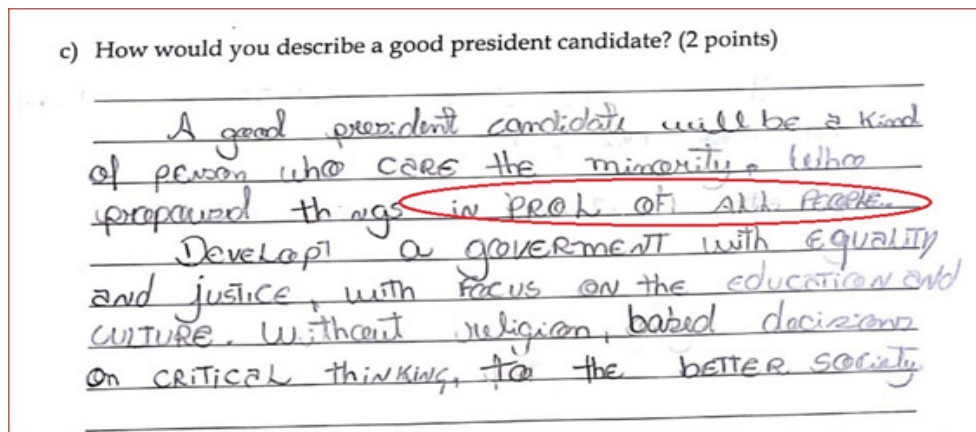 c) How would you describe a good president candidate? (2 points)
A good president candidate will be a kind
of person who CARE the minority. Who
propound things in PROL OF ALL PEOPLE.
Develop a GOVERMENT with EQUALITY
and JUSTICE, with FOCUS ON the EDUCATION AND
CULTURE. Without religion, based decisions
On CRITICAL thinking, to the BETTER society.